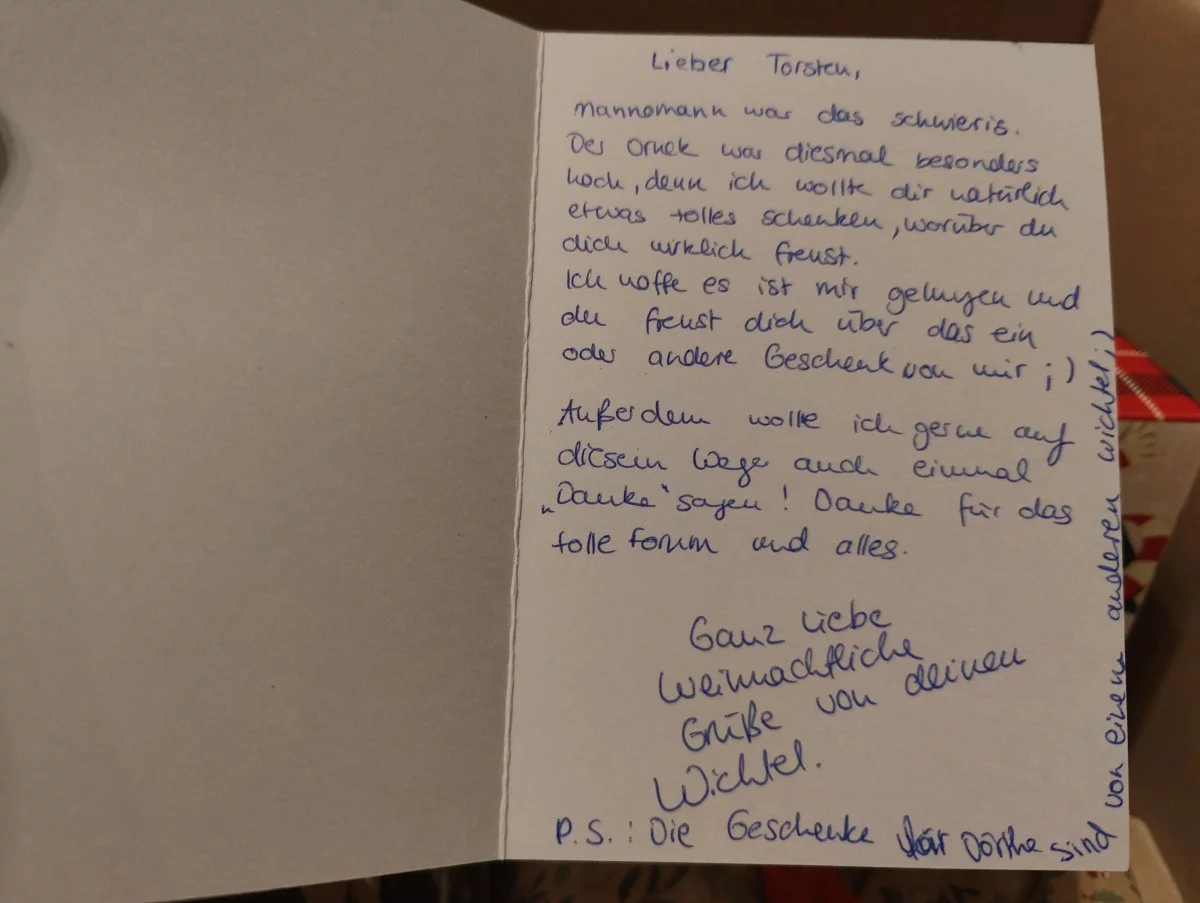 Lieber Torsten,
Mannomann war das schwierig.
Der Druck war diesmal besonders
hoch, denn ich wollte dir natürlich
etwas tolles schenken, worüber du
dich wirklich freust.
Ich hoffe es ist mir gelungen und
du freust dich über das ein
oder andere Geschenk von mir ;)
Außerdem wollte ich gerne auf
diesem Wege auch einmal
„Danke“ sagen! Danke für das
tolle Forum und alles.
Ganz Liebe
weihnachtliche
Grüße von deinen
Wichtel.
P.S.: Die Geschenke für Dörthe sind
von einem anderen wichtel ;)